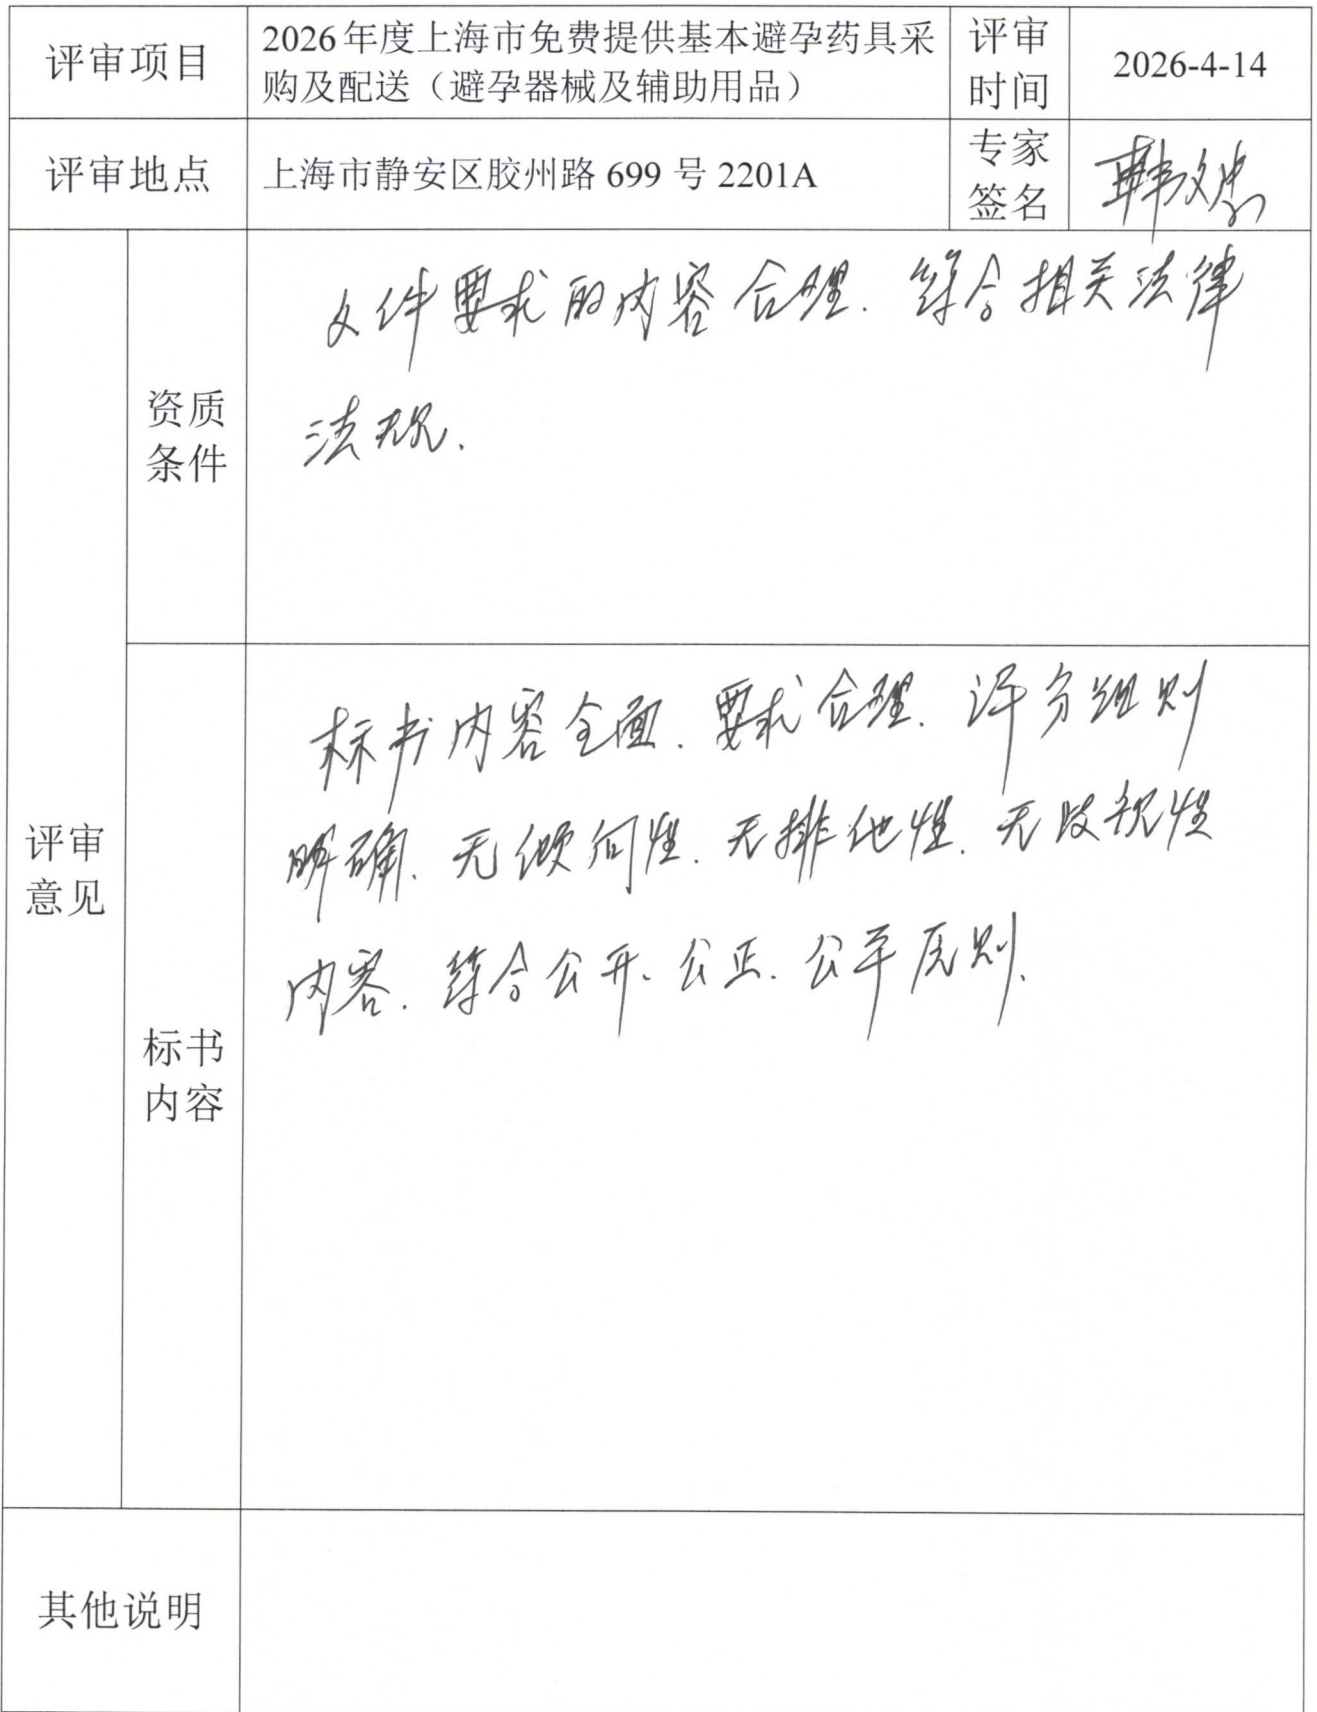 评审项目
2026年度上海市免费提供基本避孕药具采
购及配送（避孕器械及辅助用品）
评审
时间
2026-4-14
评审地点
上海市静安区胶州路 699 号 2201A
专家
签名
韩文忠
评审
意见
资质
条件
文件要求的内容合理.符合相关法律
法规.
标书
内容
标书内容全面.要求合理.评分细则
明确.无倾向性.无排他性.无歧视性
内容.符合公开.公正.公平原则.
其他说明